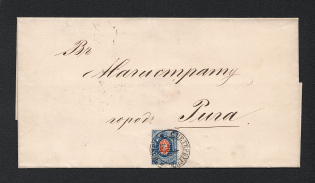 Въ
Магистратъ
города Рига